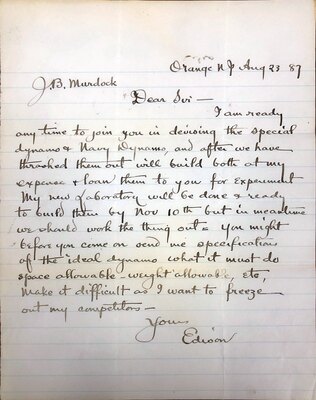 Orange NJ Aug 23 87
J.B. Murdock
Dear Sir—
I am ready
any time to join you in devising the special
dynamo & Navy Dynamo, and after we have
thrashed them out will build both at my
expense & loan them to you for experiment
My new Laboratory will be done & ready
to build them by Nov 10th but in meantime
we should work the thing out & you might
before you come on send me specification
of the ideal dynamo what it must do
space allowable—weight allowable, etc,
Make it difficult as I want to freeze
out my competitors—
Yours
Edison